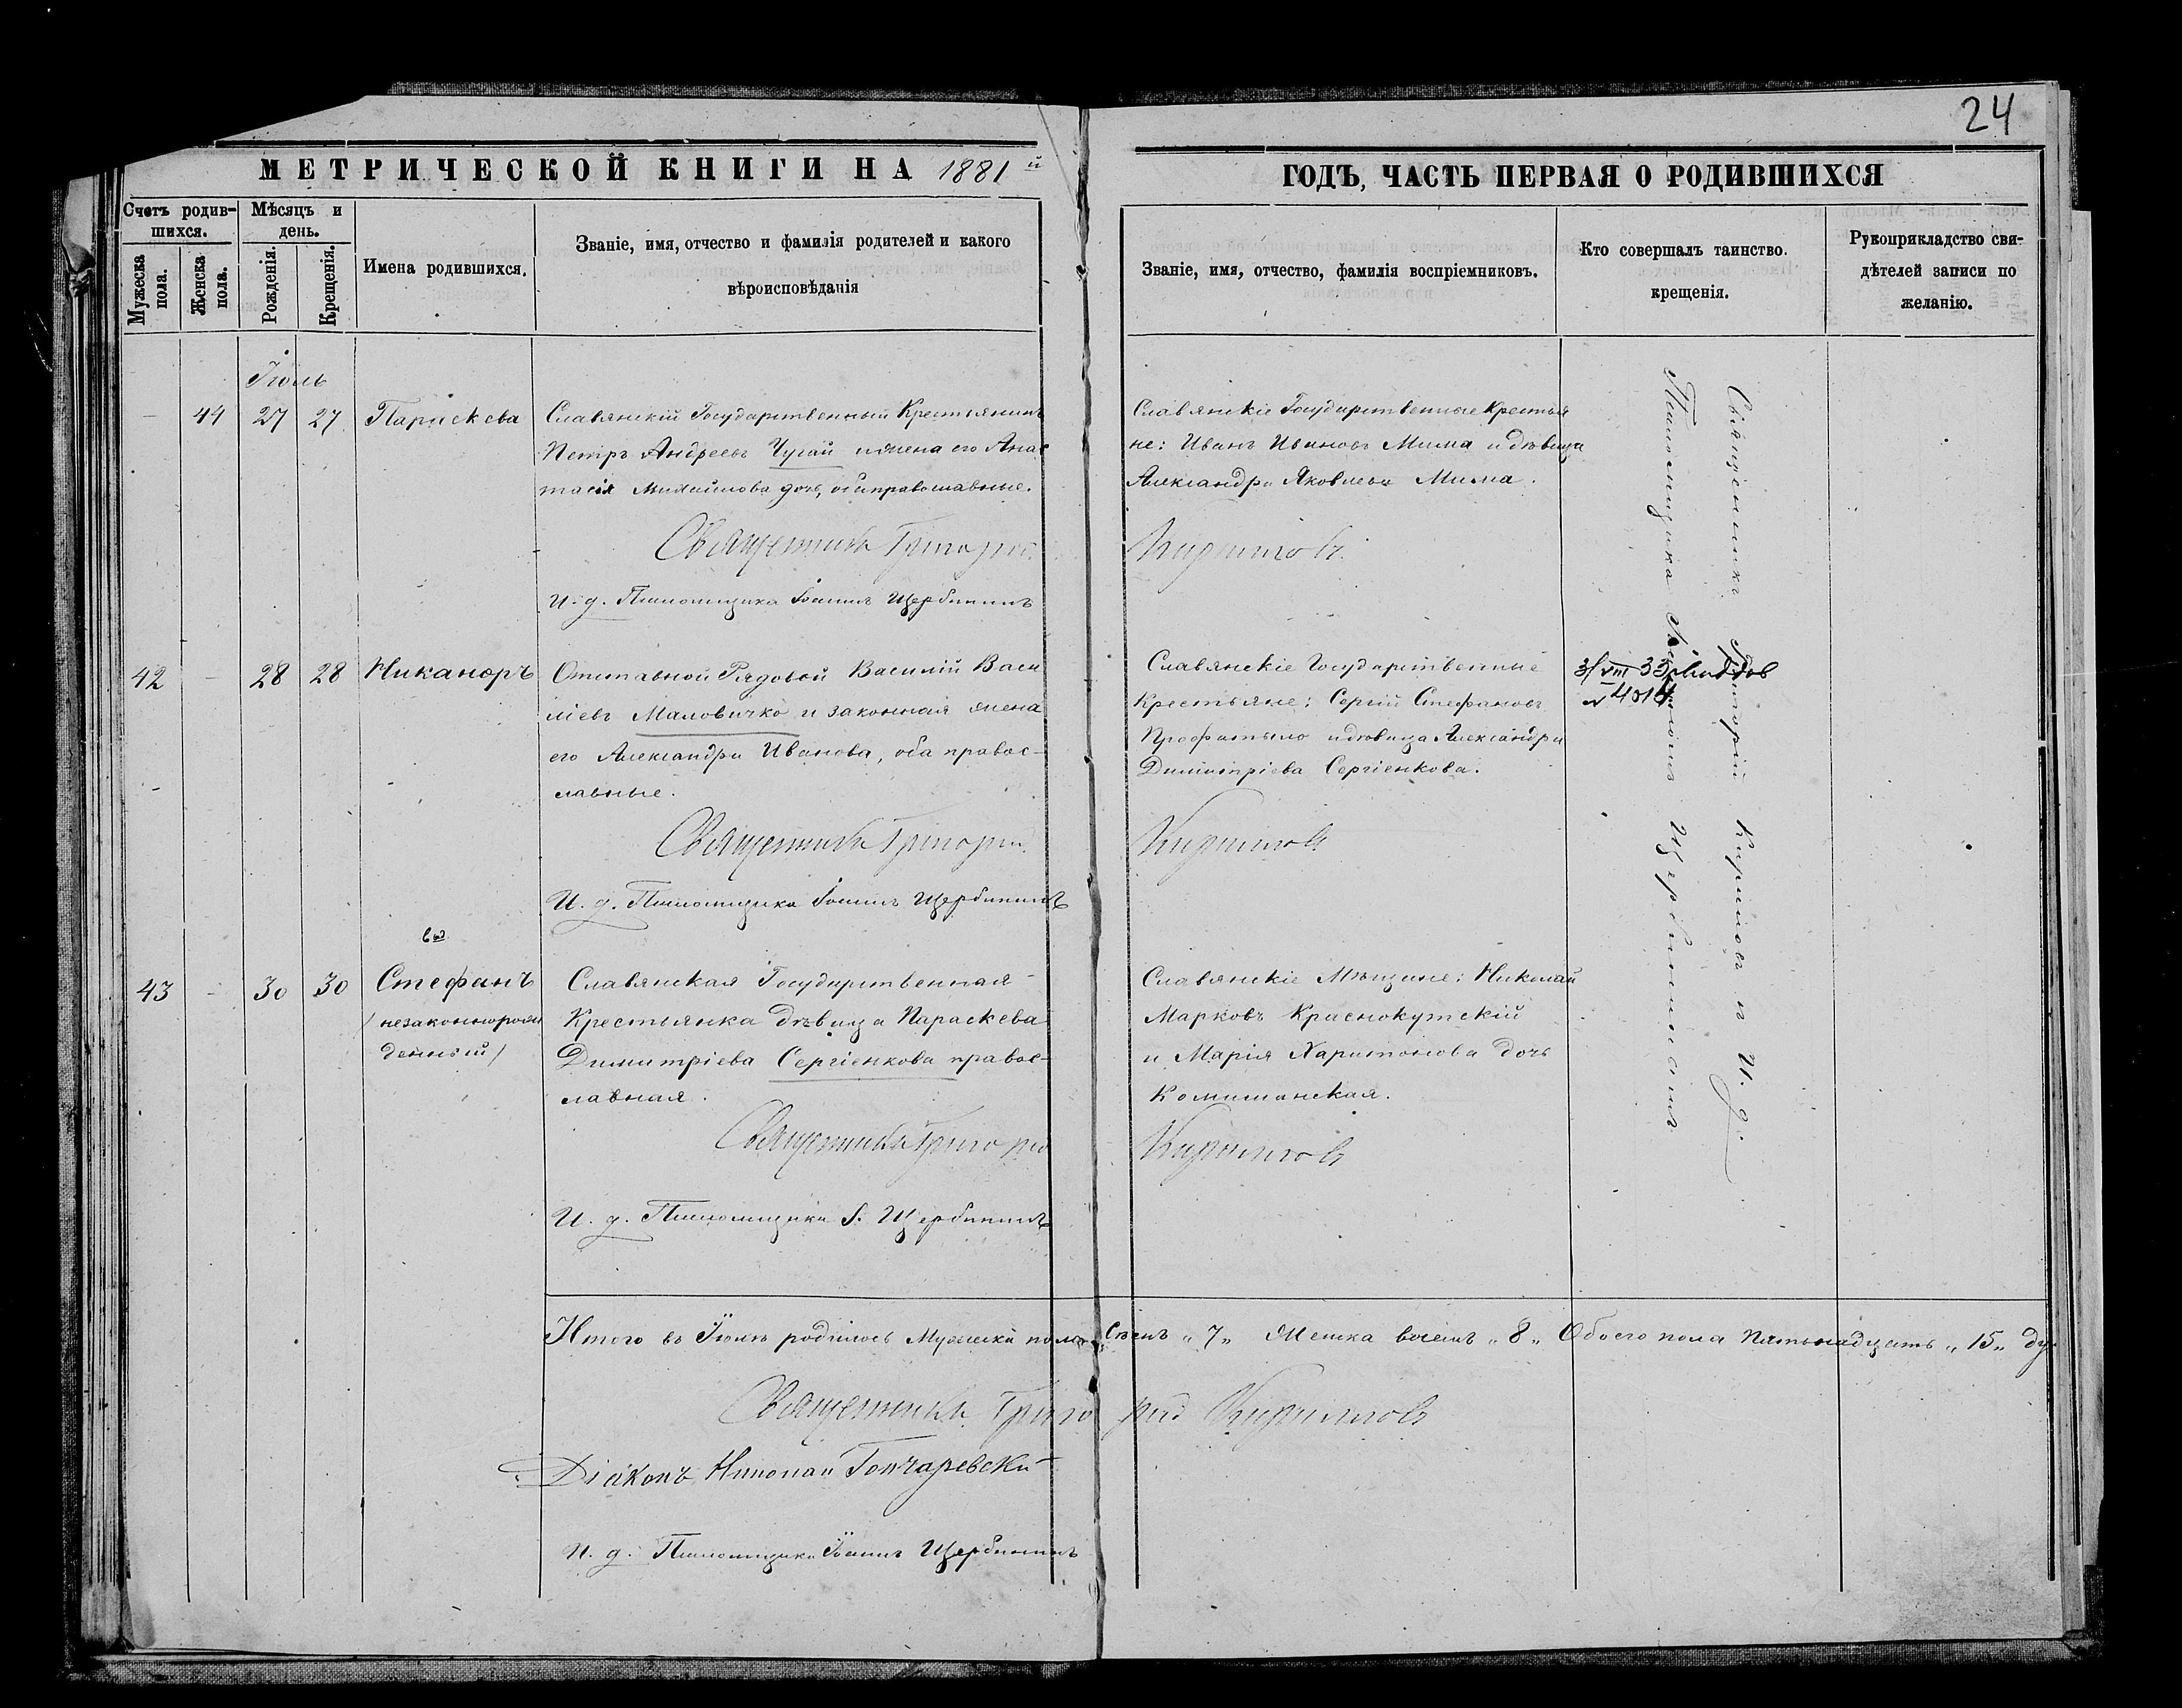 24
МЕТРИЧЕСКОЙ КНИГИ НА 1881й
ГОДЪ, ЧАСТЬ ПЕРВАЯ О РОДИВШИХСЯ
Счетъ родив-
шихся.
Мужеска
пола.
Женска
пола.
Мѣсяцъ и
день.
Рожденія.
Крещенія.
Имена родившихся.
Званіе, имя, отчество и фамилія родителей и какого
вѣроисповѣданія
Званіе, имя, отчество, фамилія воспріемниковъ.
Кто совершалъ таинство
крещенія.
Рукоприкладство сви-
дѣтелей записи по
желанію.
Іюль
44 27 27 Параскева
Славянскій Государственный Крестьянинъ
Петръ Андреевъ Чугай и жена его Анас
тасія Михайлова дочь, оба православные.
Славянскіе Государственные Крестья
не: Иванъ Ивановъ Мима и дѣвица
Александра Яковлева Мима.
Священникъ Григорій Кириловъ
И. д. Псаломщика Іоаннъ Щербининъ
42 28 28 Никаноръ
Отставной Рядовой Василій Васи
ліевъ Маловичко и законная жена
его Александра Иванова, оба правос-
лавные.
Славянскіе Государственные
Крестьяне: Сергій Стефановъ
и дѣвица Александра
Димитріева Сергіенкова.
3/VIII 33
№ 4014
Священникъ Григорій Кириловъ
И. д. Псаломщика Іоаннъ Щербининъ
43 30 30 Стефанъ
/незаконнорож
денный/
Славянская Государственная
Крестьянка дѣвица Параскева
Димитріева Сергіенкова правос-
лавная.
Славянскіе Мѣщане: Николай
Марковъ Краснокутскій
и Марія Харитонова дочь
Комишанская.
Священникъ Григорій Кириловъ
И. д. Псаломщика І. Щербининъ
Священникъ Григорій Кириловъ и И. д.
Псаломщика Іоаннъ Щербининъ
Итого въ Іюлѣ родилось Мужеска пола Семь „7„ Женска восемь „8„ Обоего пола пятьнадцать „15„ ду.
Священникъ Григорій Кириловъ
Діаконъ Николай Гончаревскій
И. д. Псаломщика Іоаннъ Щербининъ